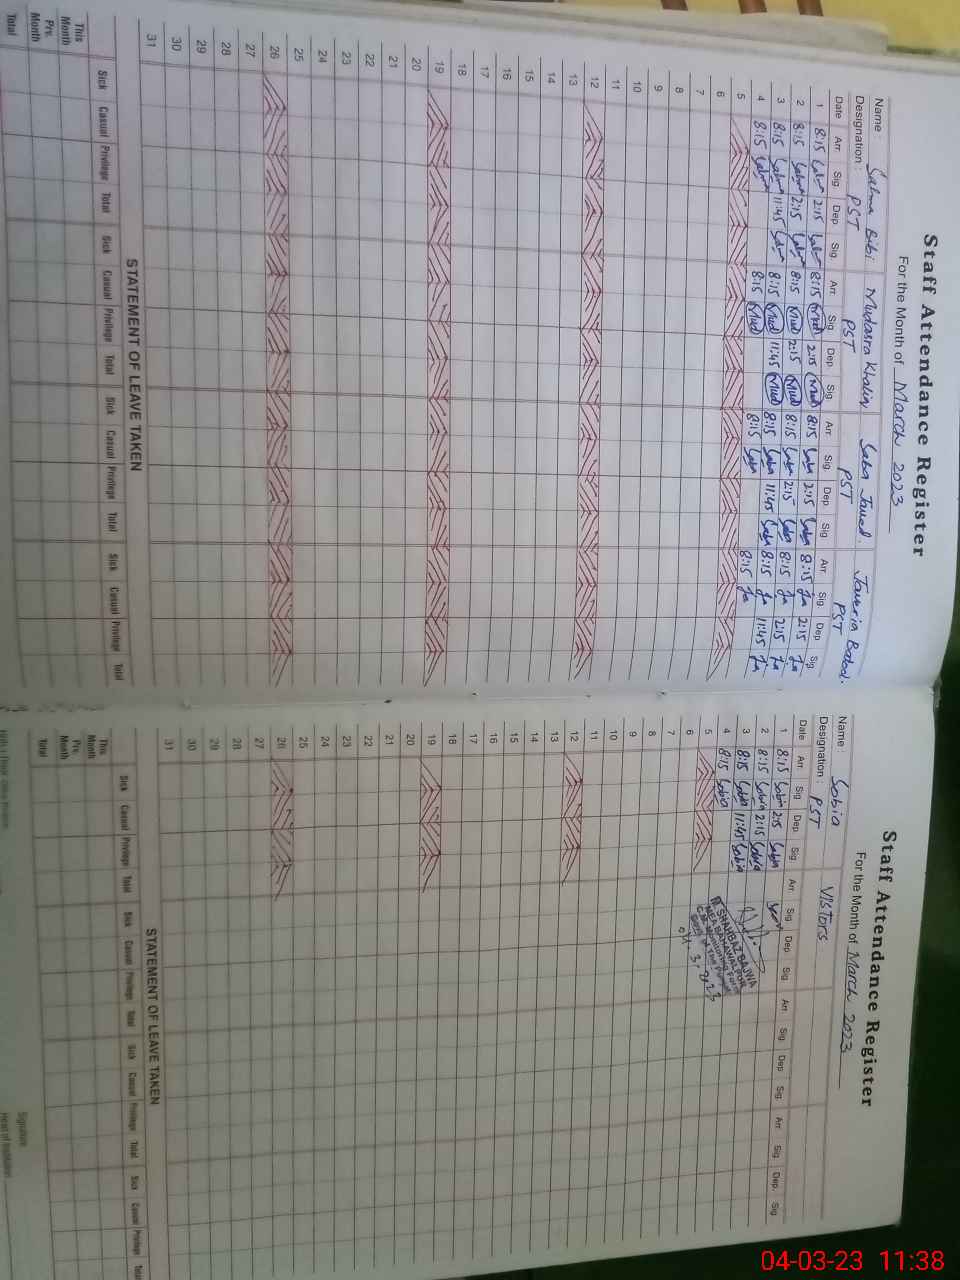 Staff Attendance Register
For the Month of March 2023
Name : Salma Bibi Mudasra Khalin Saba Javed. Javeria Batool.
Designation : PST PST PST PST
Date Arr Sig Dep Sig Arr Sig Dep. Sig Arr Sig Dep Sig Arr Sig Dep Sig
1 8:15 Salma 2:15 Salma 8:15 Mud 2:15 Mud 8:15 Saba 2:15 Saba 8:15 Ja 2:15 Ja
2 8:15 Salma 2:15 Salma 8:15 Mud 2:15 Mud 8:15 Saba 2:15 Saba 8:15 Ja 2:15 Ja
3 8:15 Salma 11:45 Salma 8:15 Mud 11:45 Mud 8:15 Saba 11:45 Saba 8:15 Ja 11:45 Ja
4 8:15 Salma 8:15 Mud 8:15 Saba 8:15 Ja
5
6
7
8
9
10
11
12
13
14
15
16
17
18
19
20
21
22
23
24
25
26
27
28
29
30
31
STATEMENT OF LEAVE TAKEN
Sick Casual Privilege Total Sick Casual Privilege Total Sick Casual Privilege Total Sick Casual Privilege Total
This Month
Prv. Month
Total
Staff Attendance Register
For the Month of March 2023
Name : Sobia Vistors
Designation : PST
Date Arr Sig Dep. Sig Arr Sig Dep Sig Arr Sig Dep Sig Arr Sig Dep. Sig
1 8:15 Sobia 2:15 Sobia
2 8:15 Sobia 2:15 Sobia
3 8:15 Sobia 11:45 Sobia
4 8:15 Sobia
M. SHAHBAZ BAJWA
MEA BAHAWALPUR
C.M. Monitoring Force
Govt. of The Punjab
04.3.2023
5
6
7
8
9
10
11
12
13
14
15
16
17
18
19
20
21
22
23
24
25
26
27
28
29
30
31
STATEMENT OF LEAVE TAKEN
Sick Casual Privilege Total Sick Casual Privilege Total Sick Casual Privilege Total Sick Casual Privilege Total
This Month
Prv. Month
Total
Signature
Head of Institution
04-03-23 11:38